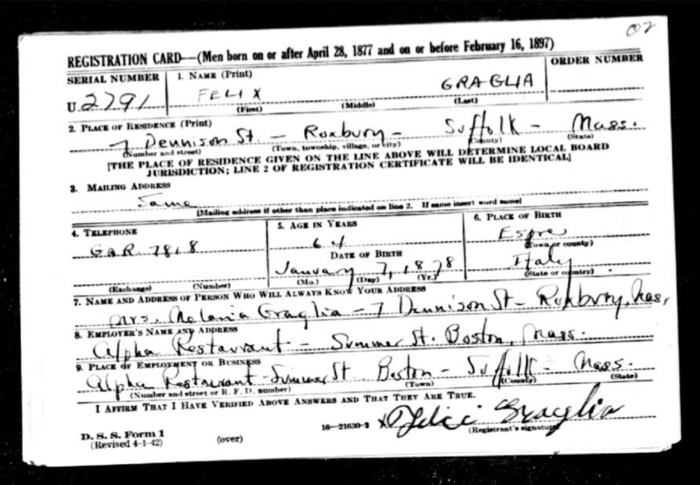 02
REGISTRATION CARD—(Men born on or after April 28, 1877 and on or before February 16, 1897)
SERIAL NUMBER
1. NAME (Print)
ORDER NUMBER
U 2791
FELIX GRAGLIA
(First) (Middle) (Last)
2. PLACE OF RESIDENCE (Print)
7 Dennison St - Roxbury - Suffolk - Mass.
(Number and street) (Town, township, village, or city) (County) (State)
[THE PLACE OF RESIDENCE GIVEN ON THE LINE ABOVE WILL DETERMINE LOCAL BOARD
JURISDICTION; LINE 2 OF REGISTRATION CERTIFICATE WILL BE IDENTICAL]
3. MAILING ADDRESS
Same
[Mailing address if other than place indicated on line 2. If same insert word same]
4. TELEPHONE
5. AGE IN YEARS
6. PLACE OF BIRTH
GAR. 7818
64
(Town or county)
DATE OF BIRTH
January 7, 1878
Italy
(Exchange) (Number)
(Mo.) (Day) (Yr.)
(State or country)
7. NAME AND ADDRESS OF PERSON WHO WILL ALWAYS KNOW YOUR ADDRESS
Mrs. Melania Graglia - 7 Dennison St - Roxbury, Mas,
8. EMPLOYER'S NAME AND ADDRESS
Alpha Restaurant - Summer St. Boston, Mass.
9. PLACE OF EMPLOYMENT OR BUSINESS
Alpha Restaurant - Summer St Boston - Suffolk - Mass.
(Number and street or R. F. D. number) (Town) (County) (State)
I AFFIRM THAT I HAVE VERIFIED ABOVE ANSWERS AND THAT THEY ARE TRUE.
D. S. S. Form 1
(Revised 4-1-42) (over) 16—21630-2 x Felice Graglia
(Registrant's signature)